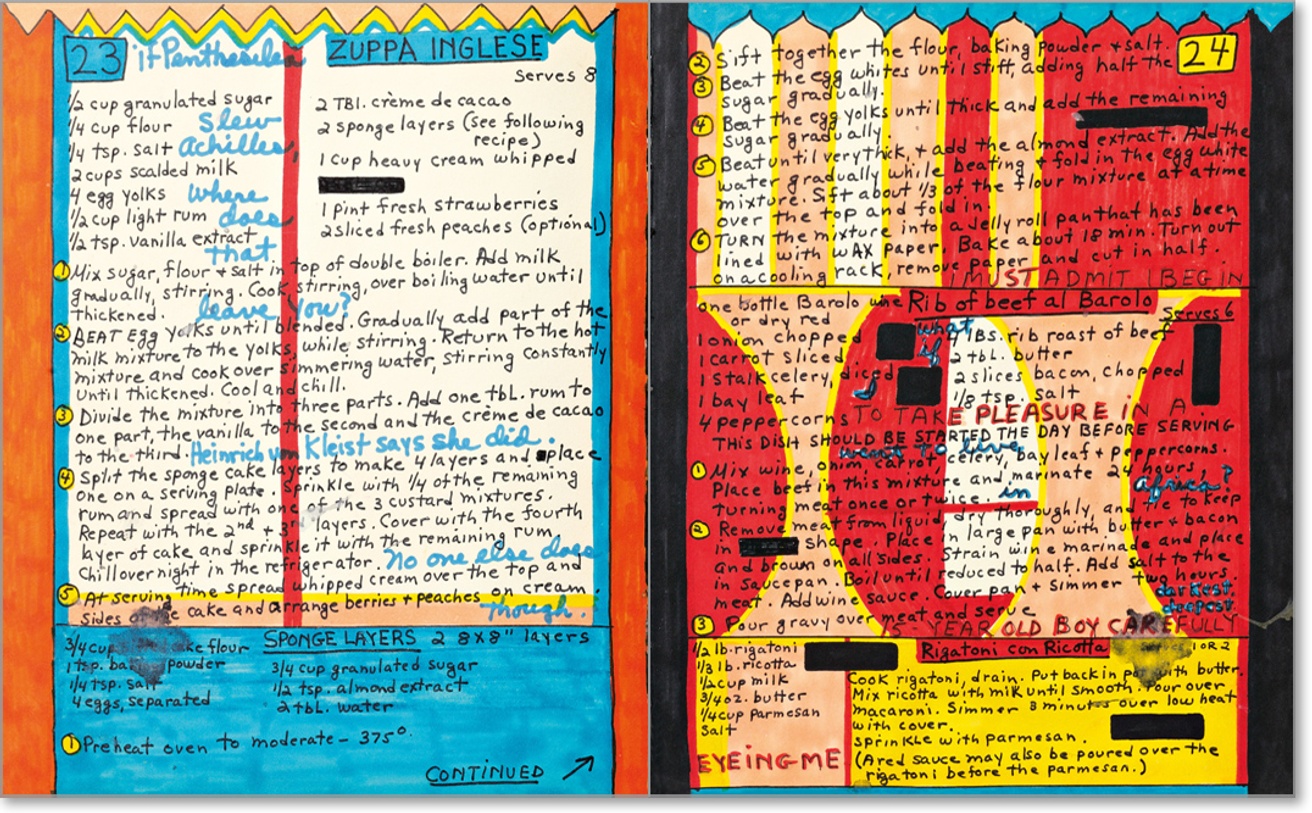 23
if Penthesilea
ZUPPA INGLESE
Serves 8
1/2 cup granulated sugar
1/4 cup flour
Slew
1/4 tsp. salt
Achilles,
2 cups scalded milk
4 egg yolks
where
1/2 cup light rum
does
1/2 tsp. vanilla extract
that
2 TBl. crème de cacao
2 sponge layers (see following
recipe)
1 cup heavy cream whipped
1 pint fresh strawberries
2 sliced fresh peaches (optional)
1 Mix sugar, flour + salt in top of double boiler. Add milk
gradually, stirring. Cook stirring, over boiling water until
thickened.
leave you?
2 BEAT Egg yolks until blended. Gradually add part of the
milk mixture to the yolks, while stirring. Return to the hot
mixture and cook over simmering water, stirring constantly
until thickened. Cool and chill.
3 Divide the mixture into three parts. Add one tbl. rum to
one part, the vanilla to the second and the crème de cacao
to the third.
Heinrich von Kleist says she did.
4 Split the sponge cake layers to make 4 layers and place
one on a serving plate. Sprinkle with 1/4 of the remaining
rum and spread with one of the 3 custard mixtures.
Repeat with the 2nd + 3rd layers. Cover with the fourth
layer of cake and sprinkle it with the remaining rum.
Chill overnight in the refrigerator.
No one else does
5 At serving time spread whipped cream over the top and
sides of the cake and arrange berries + peaches on cream.
though.
SPONGE LAYERS 2 8x8" layers
3/4 cup cake flour
1 tsp. baking powder
1/4 tsp. salt
4 eggs, separated
3/4 cup granulated sugar
1/2 tsp. almond extract
2 tbl. water
1 Preheat oven to moderate - 375°
CONTINUED
24
2 Sift together the flour, baking powder + salt.
3 Beat the egg whites until stiff, adding half the
sugar gradually.
4 Beat the egg yolks until thick and add the remaining
sugar gradually.
5 Beat until very thick, + add the almond extract. Add the
water gradually while beating + fold in the egg white
mixture. Sift about 1/3 of the flour mixture at a time
over the top and fold in.
6 TURN the mixture into a Jelly roll pan that has been
lined with wAX paper. Bake about 18 min. Turn out
on a cooling rack, remove paper and cut in half.
I MUST ADMIT I BEGIN
Rib of beef al Barolo
Serves 6
one bottle Barolo wine
or dry red
1 onion chopped
1 carrot sliced
1 Stalk celery, diced
1 bay leaf
4 peppercorns
what
if
4 lbs. rib roast of beef
2 tbl. butter
2 slices bacon, chopped
1/8 tsp. salt
TO TAKE PLEASURE IN A
THIS DISH SHOULD BE STARTED THE DAY BEFORE SERVING
went to live
1 Mix wine, onion, carrot, celery, bay leaf + peppercorns.
Place beef in this mixture and marinate 24 hours,
turning meat once or twice.
in
Africa?
2 Remove meat from liquid, dry thoroughly, and tie to keep
in shape. Place in large pan with butter + bacon
and brown on all sides. Strain wine marinade and place
in saucepan. Boil until reduced to half. Add salt to the
meat. Add wine sauce. Cover pan + simmer two hours.
darkest,
deepest
3 Pour gravy over meat and serve
15-YEAR OLD BOY CAREFULLY
Rigatoni con Ricotta
1 OR 2
1/2 lb. rigatoni
1/3 lb. ricotta
1/2 cup milk
3/4 oz. butter
1/4 cup parmesan
Salt
Cook rigatoni, drain. Put back in pot with butter.
Mix ricotta with milk until smooth. Pour over
macaroni. Simmer 3 minutes over low heat
with cover.
Sprinkle with parmesan.
(A red sauce may also be poured over the
rigatoni before the parmesan.)
EYEING ME